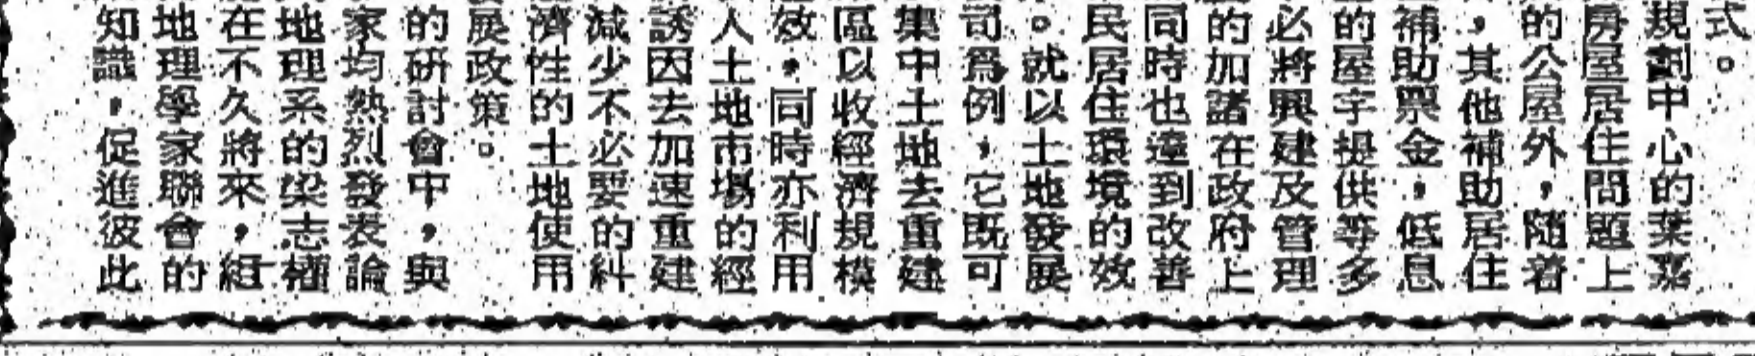 式。
規劃中心的葉嘉
房屋居住問題上
的公屋外，隨着
，其他補助居住
補助票金，低息
的屋宇提供等多
必將興建及管理
的加諸在政府上
同時也達到改善
民居住環境的效
。就以土地發展
司為例，它既可
集中土地去重建
區以收經濟規模
效，同時亦利用
人土地市場的經
誘因去加速重建
減少不必要的糾
濟性的土地使用
展政策。
的研討會中，與
家均熱烈發表論
地理系的梁志權
在不久將來，組
地理學家聯會的
知識，促進彼此